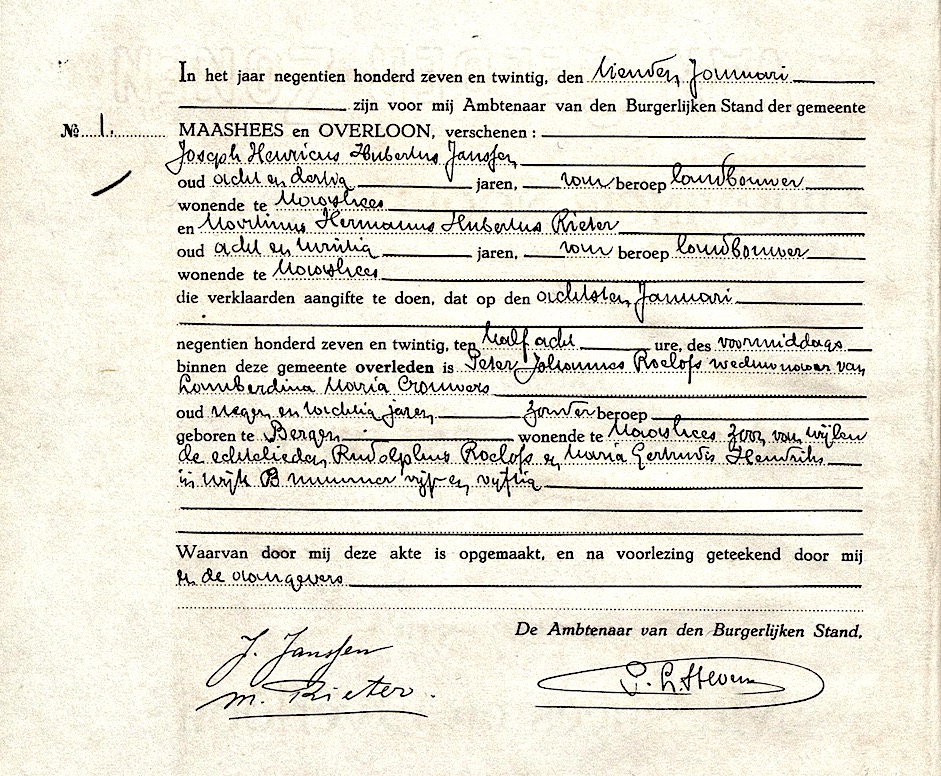 In het jaar negentien honderd zeven en twintig, den tienden Januari
zijn voor mij Ambtenaar van den Burgerlijken Stand der gemeente
No 1. MAASHEES en OVERLOON, verschenen :
Joseph Henricus Hubertus Janssen
oud acht en dertig jaren, van beroep landbouwer
wonende te Maashees
en Martinus Hermanus Hubertus Rieter
oud acht en twintig jaren, van beroep landbouwer
wonende te Maashees
die verklaarden aangifte te doen, dat op den achtsten Januari
negentien honderd zeven en twintig, ten half acht ure, des voormiddags
binnen deze gemeente overleden is Peter Johannes Roelofs weduwnaar van
Lamberdina Maria Crouwers
oud negen en tachtig jaren zonder beroep
geboren te Bergen wonende te Maashees zoon van wijlen
de echtelieden Rudolphus Roelofs en Maria Gertrudis Hendriks
in wijk B nummer vijf en vijftig
Waarvan door mij deze akte is opgemaakt, en na voorlezing geteekend door mij
en de aangevers
De Ambtenaar van den Burgerlijken Stand,
J. Janssen
M. Rieter.